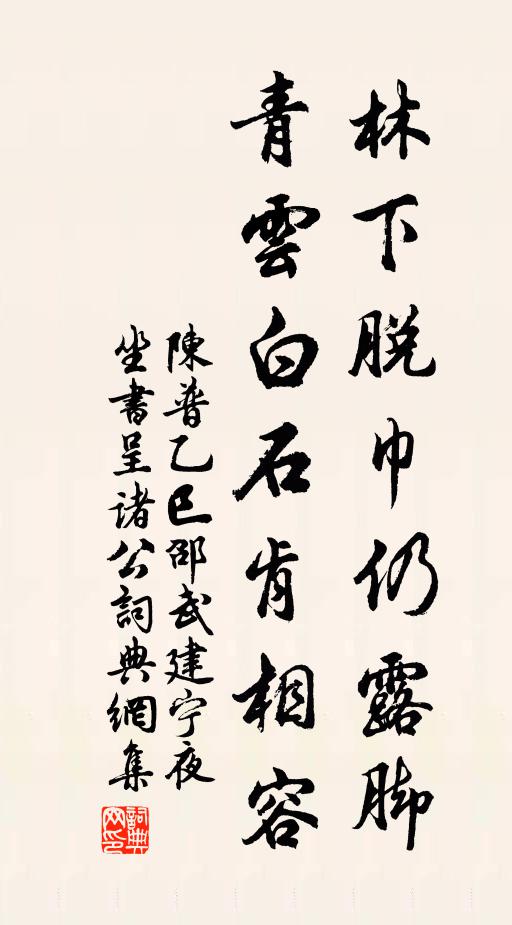 林下脫巾仍露脚
青雲白石肯相容
陳普乙巳邵武建宁夜
坐書呈诸公詞典網集
詞典
网印